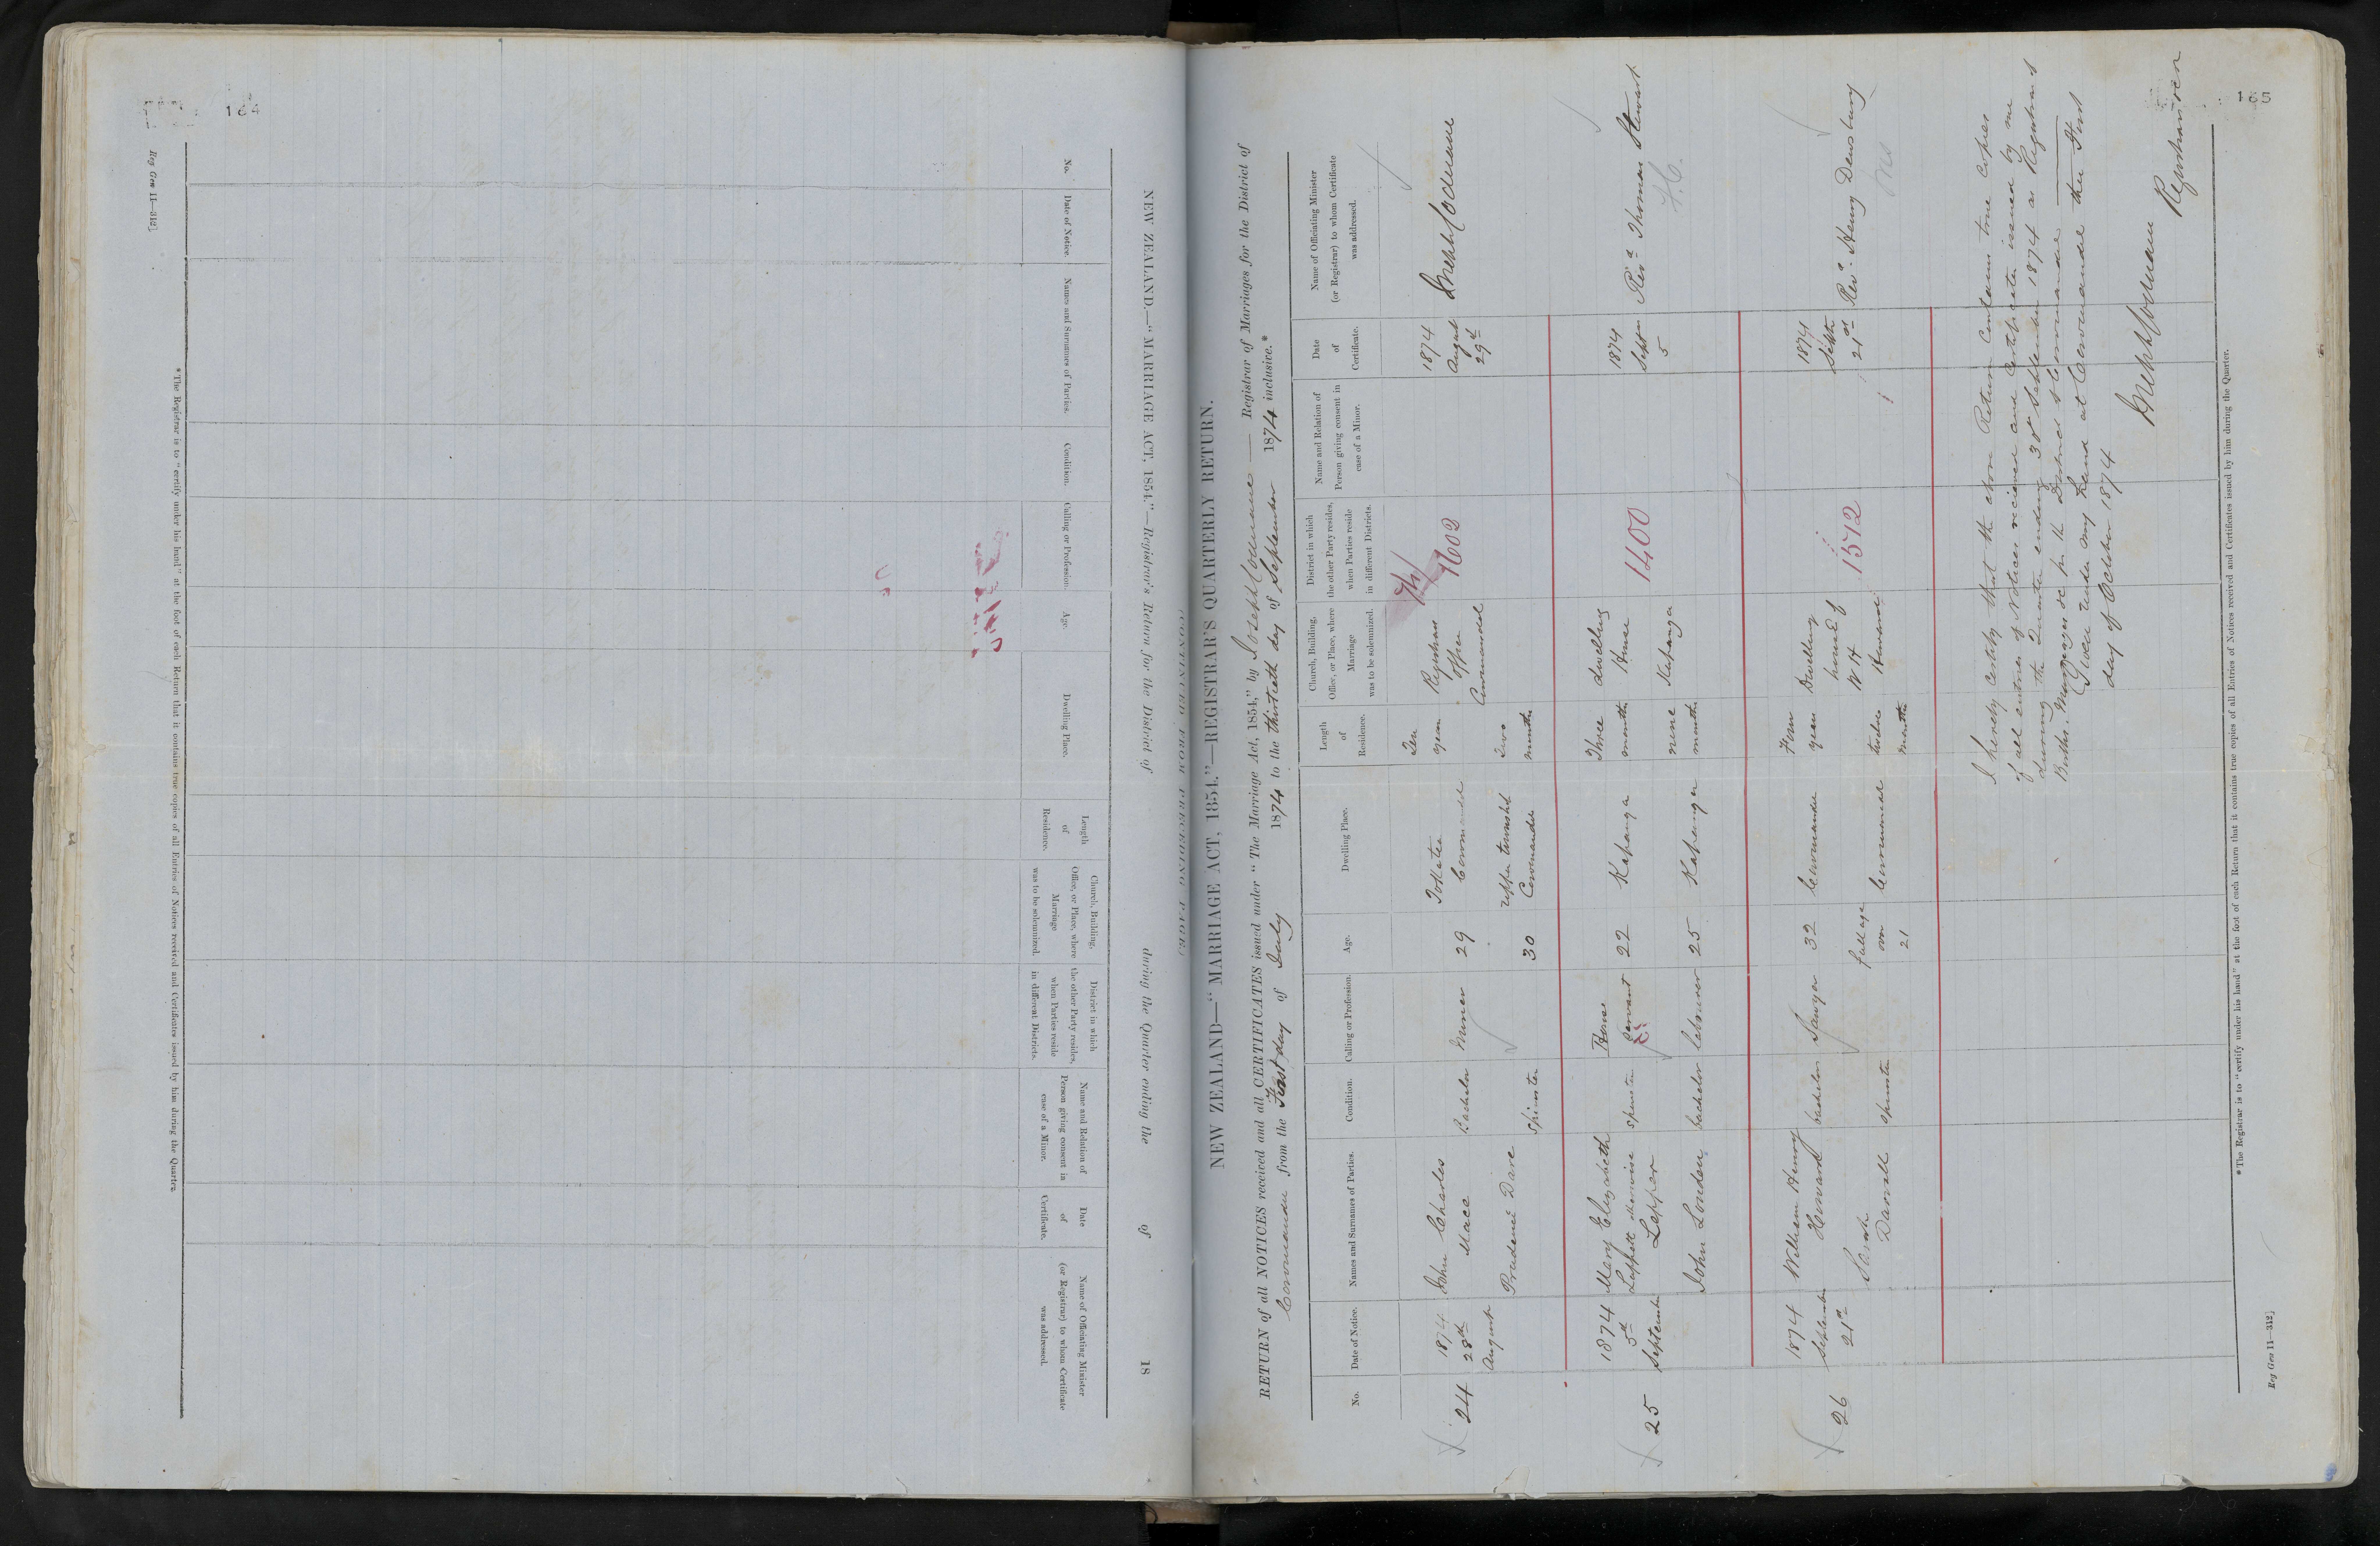 164
Reg Gen 11—312]
NEW ZEALAND.—“MARRIAGE ACT, 1854.”—Registrar's Return for the District of during the Quarter ending the of 18
No.
Date of Notice.
Names and Surnames of Parties.
Condition.
Calling or Profession.
Age.
Dwelling Place.
Length
of
Residence.
Church, Building,
Office, or Place, where
Marriage
was to be solemnized.
District in which
the other Party resides,
when Parties reside
in different Districts.
Name and Relation of
Person giving consent in
case of a Minor.
Date
of
Certificate.
Name of Officiating Minister
(or Registrar) to whom Certificate
was addressed.
*The Registrar is to “certify under his hand” at the foot of each Return that it contains true copies of all Entries of Notices received and Certificates issued by him during the Quarter.
165
(CONTINUED FROM PRECEDING PAGE.)
NEW ZEALAND—“MARRIAGE ACT, 1854.”—REGISTRAR'S QUARTERLY RETURN.
RETURN of all NOTICES received and all CERTIFICATES issued under “The Marriage Act, 1854,” by Registrar of Marriages for the District of
from the First day of July 1874 to the thirtieth day of September 1874 inclusive.*
No.
Date of Notice.
Names and Surnames of Parties.
Condition.
Calling or Profession.
Age.
Dwelling Place.
Length
of
Residence.
Church, Building,
Office, or Place, where
Marriage
was to be solemnized.
District in which
the other Party resides,
when Parties reside
in different Districts.
Name and Relation of
Person giving consent in
case of a Minor.
Date
of
Certificate.
Name of Officiating Minister
(or Registrar) to whom Certificate
was addressed.
24
1874
28th
August
John Charles
Mace
Bachelor
Miner
29
Ten
years
Registrars
office
Coromandel
1602
1874
August
29th
Prudence Dare
Spinster
30
upper township
Two
months
25
1874
5th
September
Mary Elizabeth
Leppett otherwise
Lepper
spinster
servant
22
Kapanga
Three
months
dwelling
House
Kapanga
1400
1874
Septr
5
Revd Thomas Stewart
F.C.
John Louden
bachelor
labourer
25
Kapanga
nine
months
26
1874
September
21st
William Henry
Howard
bachelor
Sawyer
32
Four
years
Dwelling
house of
W H
Howard
1572
1874
Septr
21st
Revd Henry Densbury
Sarah
Darrell
spinster
Full age
over
21
twelve
months
I hereby certify that the above Return contains true copies
of all entries of Notices received and Certificates issued by me
during the Quarter ending 30th September 1874 as Registrar of
Births Marriages &c for the District of Coromandel
Given under my hand at Coromandel this First
day of October 1874
Registrar
*The Registrar is to “certify under his hand” at the foot of each Return that it contains true copies of all Entries of Notices received and Certificates issued by him during the Quarter.
Reg Gen 11—312]